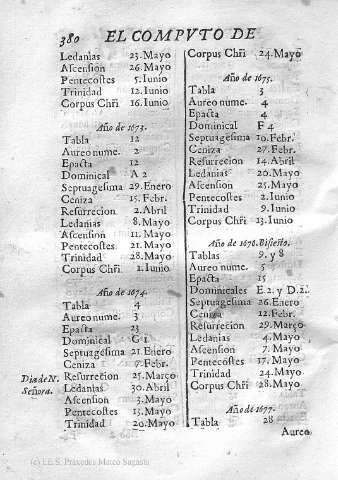 380 EL COMPVTO DE
Ledanias 23. Mayo
Ascension 26. Mayo
Pentecostes 5. Iunio
Trinidad 12. Iunio
Corpus Chri 16. Iunio
Año de 1673.
Tabla 12
Aureo nume. 2
Epacta 12
Dominical A 2
Septuagesima 29. Enero
Ceniza 15. Febr.
Resurrecion 2. Abril
Ledanias 8. Mayo
Ascension 11. Mayo
Pentecostes 21. Mayo
Trinidad 28. Mayo
Corpus Chri 1. Iunio
Año de 1674.
Tabla 4
Aureo nume. 3
Epacta 23
Dominical G 1
Septuagesima 21. Enero
Ceniza 7. Febr.
Dia de N. Señora.
Resurrecion 25. Março
Ledanias 30. Abril
Ascension 3. Mayo
Pentecostes 13. Mayo
Trinidad 20. Mayo
Corpus Chri 24. Mayo
Año de 1675.
Tabla 3
Aureo nume. 4
Epacta 4
Dominical F 4
Septuagesima 10. Febr.
Ceniza 27. Febr.
Resurrecion 14. Abril
Ledanias 20. Mayo
Ascension 25. Mayo
Pentecostes 2. Iunio
Trinidad 9. Iunio
Corpus Chri 13. Iunio
Año de 1676. Bisiesto.
Tablas 9. y 8
Aureo nume. 5
Epacta 15
Dominicales E 2. y D 2.
Septuagesima 26. Enero
Ceniza 12. Febr.
Resurrecion 29. Março
Ledanias 4. Mayo
Ascension 7. Mayo
Pentecostes 17. Mayo
Trinidad 24. Mayo
Corpus Chri 28. Mayo
Año de 1677.
Tabla 28
Aureo
(c) I.E.S. Práxedes Mateo Sagasta